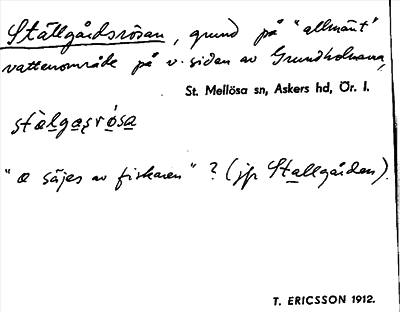 Ställgårdsrösan, grund på "allmänt"
vattenområde på v. sidan av Grundholmarna,
St. Mellösa sn, Askers hd, Ör. l.
stä̀lgas̨rósa
"æ säjes av fiskaren" ? (jfr Stallgården).
T. ERICSSON 1912.